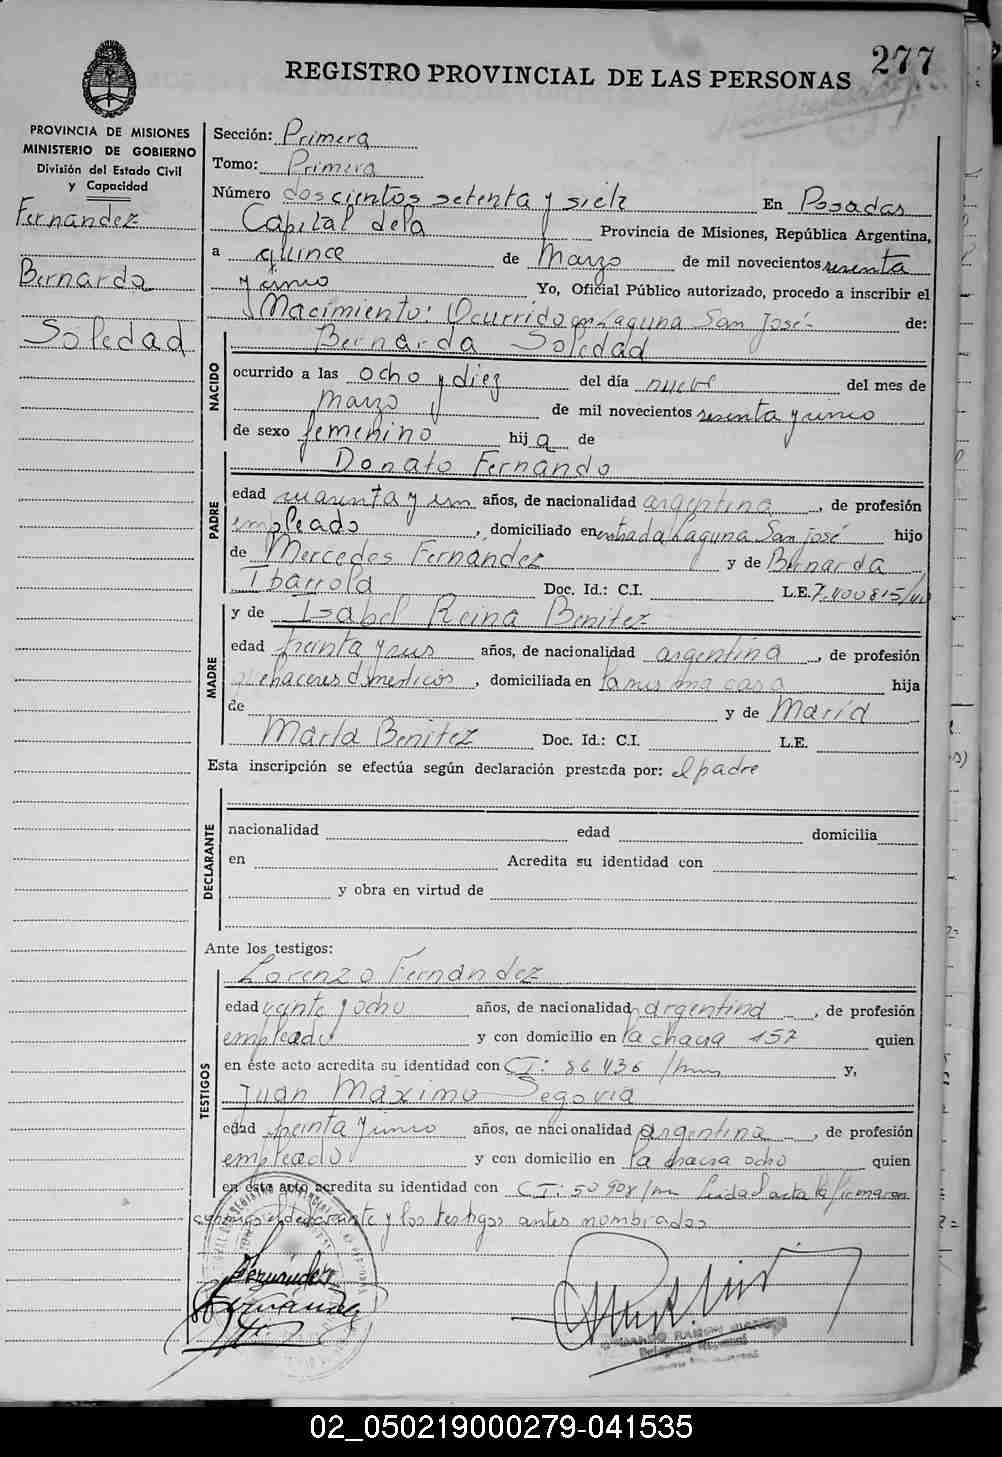 277
REGISTRO PROVINCIAL DE LAS PERSONAS
PROVINCIA DE MISIONES
MINISTERIO DE GOBIERNO
División del Estado Civil
y Capacidad
Fernandez
Bernarda
Soledad
Sección: Primera
Tomo: Primera
Número doscientos setenta y siete En Posadas
Capital dela Provincia de Misiones, República Argentina,
a quince de Marzo de mil novecientos sesenta
y uno Yo, Oficial Público autorizado, procedo a inscribir el
Nacimiento: Ocurrido en Laguna San José- de:
NACIDO
Bernarda Soledad
ocurrido a las ocho y diez del día nueve del mes de
marzo de mil novecientos sesenta y uno
de sexo femenino hija de
PADRE
Donato Fernando
edad cuarenta y un años, de nacionalidad argentina, de profesión
empleado, domiciliado en entrada Laguna San josé hijo
de Mercedes Fernandez y de Bernarda
Ibarrola Doc. Id.: C.I. L.E. 7.400815/
y de Isabel Reina Benitez
MADRE
edad treinta y seis años, de nacionalidad argentina, de profesión
quehaceres domesticos, domiciliada en la misma casa hija
de y de María
Marta Benitez Doc. Id.: C.I. L.E.
Esta inscripción se efectúa según declaración prestada por: el padre
DECLARANTE
nacionalidad edad domicilia
en Acredita su identidad con
y obra en virtud de
Ante los testigos:
TESTIGOS
Lorenzo Fernández
edad veinte y ocho años, de nacionalidad argentina, de profesión
empleado y con domicilio en la chacra 157 quien
en éste acto acredita su identidad con CI: 86436 / y,
Juan Máximo Segovia
edad treinta y uno años, de nacionalidad argentina, de profesión
empleado y con domicilio en la chacra ocho quien
en éste acto acredita su identidad con CI: 50908/ Leída el acta la firmaron
conmigo el declarante y los testigos antes nombrados
Fernández
02_050219000279-041535